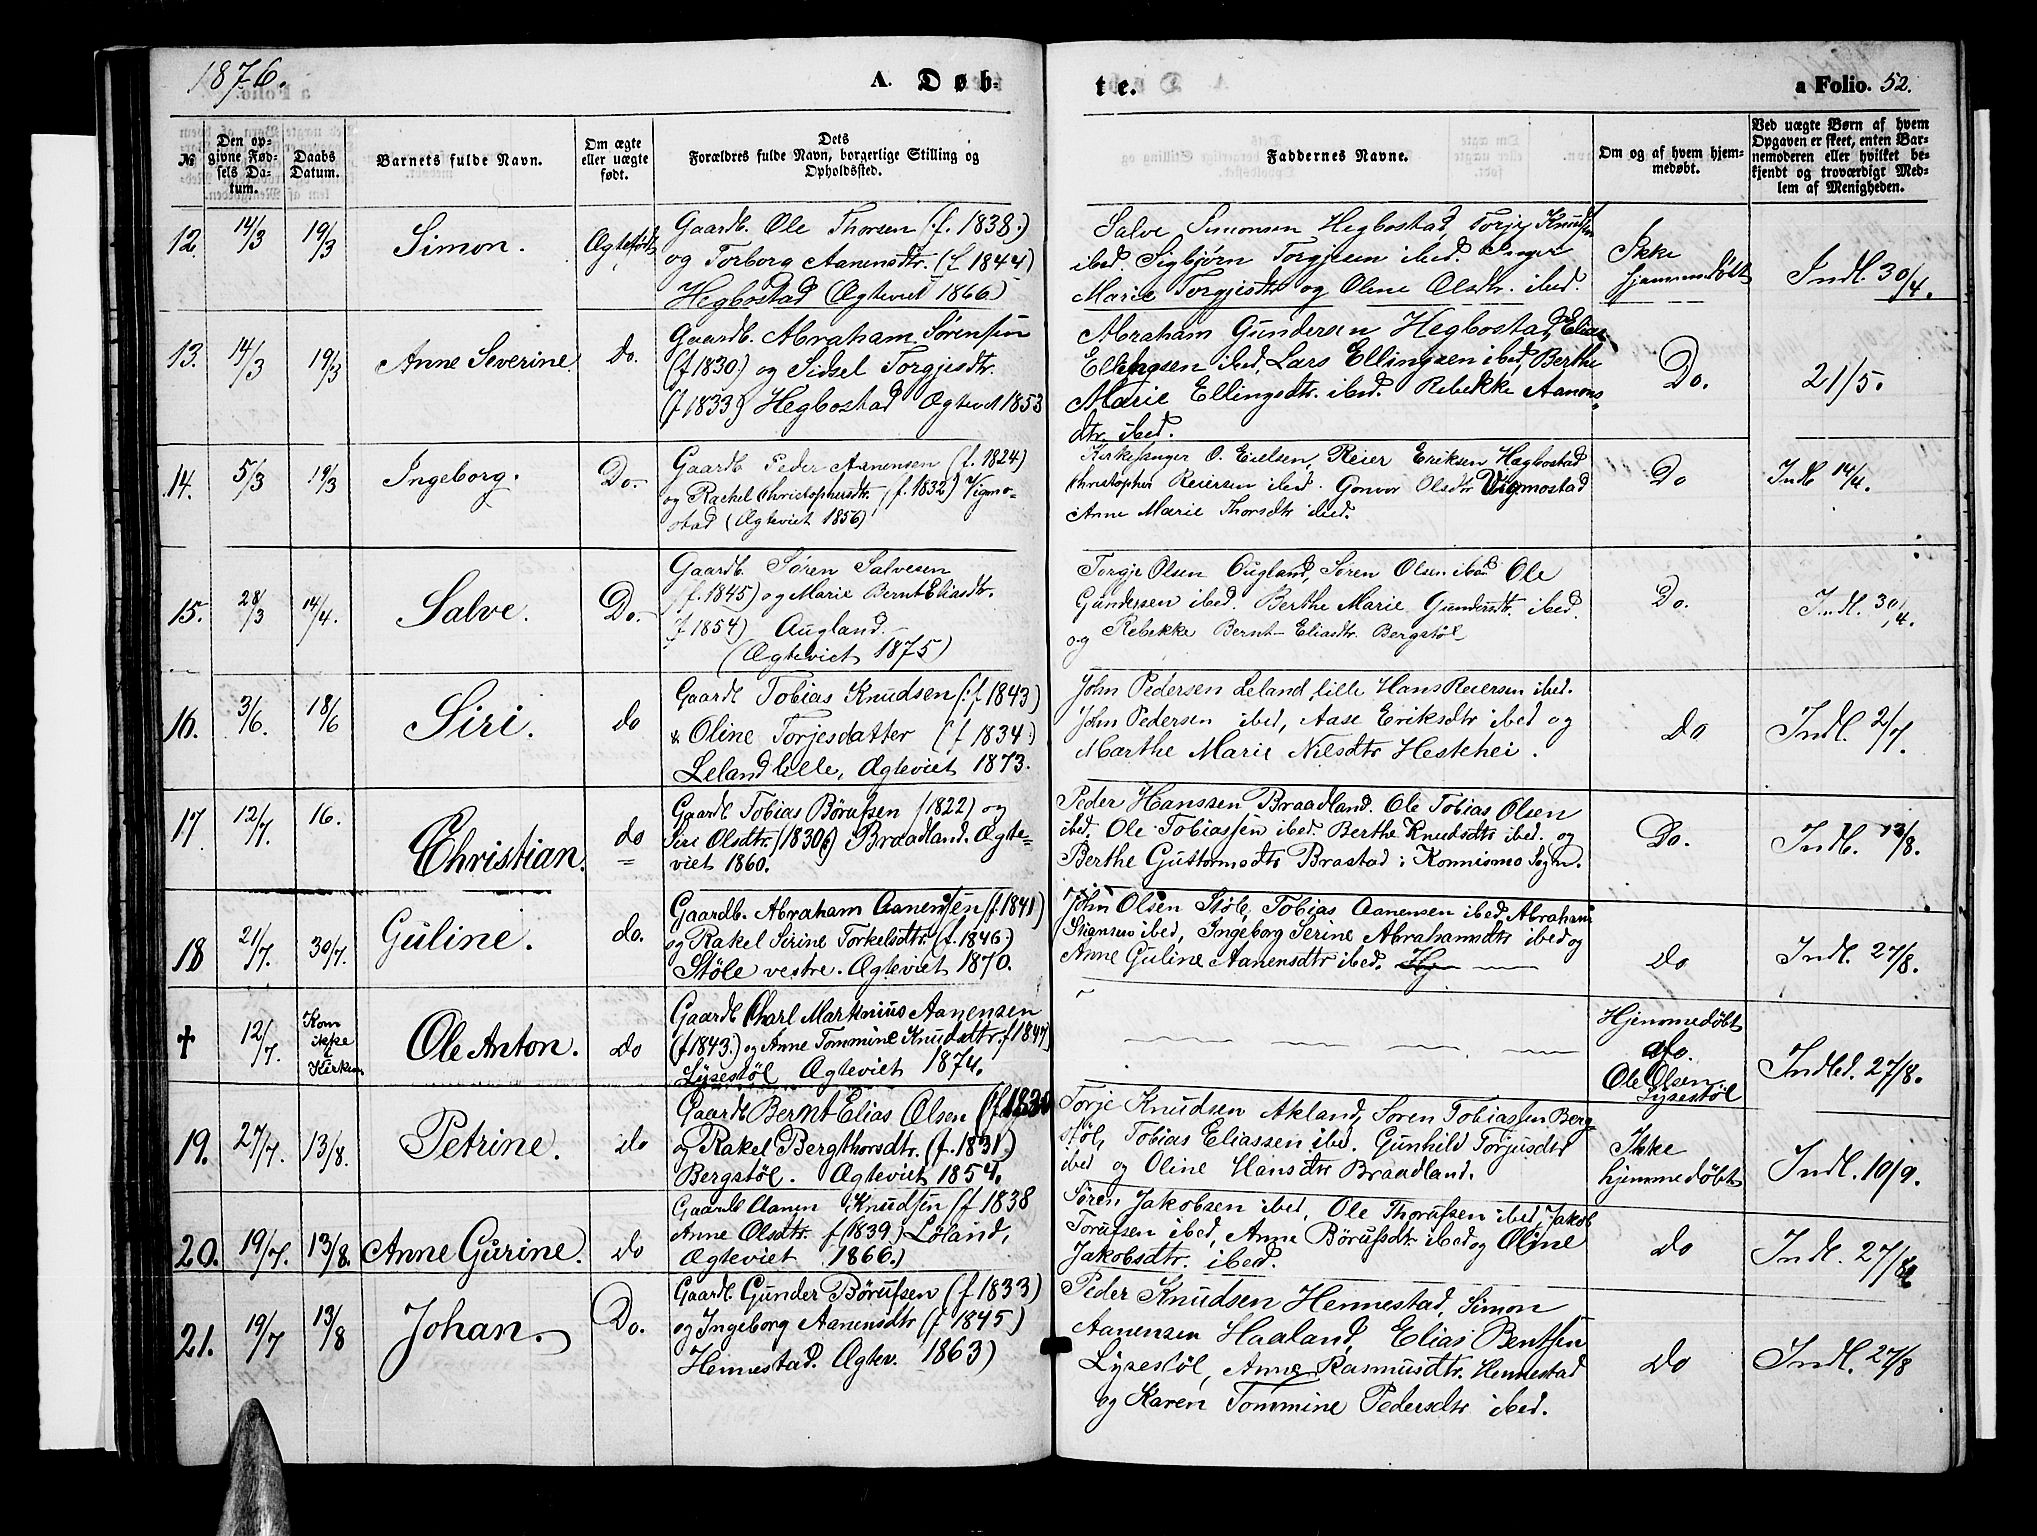 1876.
A. Døb-
te.
a Folio. 52.
№
Den op-
givne Fød-
sels Da-
tum.
Daabs
Datum.
Barnets fulde Navn.
Om ægte
eller uægte
født.
Dets
Forældres fulde Navn, borgerlige Stilling og
Opholdssted.
Faddernes Navne.
Om og af hvem hjem-
medøbt.
Ved uægte Børn af hvem
Opgaven er skeet, enten Bar-
nemoderen eller hvilket be-
kjendt og troværdigt Med-
lem af Menigheden.
12. 14/3 19/3 Simon. Ægtefødt
Gaardb. Ole Thorsen (f. 1838.)
og Torborg Aanensdtr. (f. 1844)
Hegbostad (Ægteviet 1866)
Salve Simonsen Hegbostad, Torje Knudsen
ibed. Sigbjørn Torgjesen ibed. Inger
Marie Torgjisdtr og Oline Olsdtr. ibed.
Ikke
hjemmedøbt
Indl. 30/4.
13. 14/3 19/3 Anne Severine. Do.
Gaardb. Abraham Sørensen
(f 1830.) og Sidsel Torgjesdtr.
(f 1833) Hegbostad Ægteviet 1853
Abraham Gundersen Hegbostad, Elias
Ellingsen ibed, Lars Ellingsen ibed, Berthe
Marie Ellingsdtr. ibed. Rebekke Aanens-
dtr. ibed.
Do.
21/5.
14. 5/3 19/3 Ingeborg. Do.
Gaardb. Peder Aanensen (f. 1824)
og Rachel Christophersdtr. (f. 1832) Vigmo-
stad (Ægteviet 1856)
Kirkesanger O. Eielsen, Reier Eriksen Hegbostad
Christopher Reiersen ibed. Gonvor Olsdtr Vigmostad
Anne Marie Thorsdtr ibed.
Do
Indl 14/4.
15. 28/3 14/4. Salve. Do.
Gaardb. Søren Salvesen
(f. 1845) og Marie Bernt Eliasdtr.
f 1854) Augland.
(Ægteviet 1875)
Torgje Olsen Ougland, Søren Olsen ibed Ole
Gundersen ibed. Berthe Marie Gundersdtr. ibed.
og Rebekke Bernt-Eliasdtr. Bergstøl
Do.
Indl. 30/4.
16. 3/6. 18/6 Siri. do
Gaardb Tobias Knudsen (f. 1843)
& Oline Torjesdatter (f 1834.)
Leland lille, Ægteviet 1873.
John Pedersen Leland lille Hans Reiersen ibed.
John Pedersen ibed, Aase Eriksdtr ibed og
Marthe Marie Nilsdtr Hestehei.
do
Indl. 2/7.
17. 12/7. 16. Christian. do
Gaardb Tobias Børufsen (1822) og
Siri Olsdtr. (1830) Braadland. Ægte=
viet 1860.
Peder Hanssen Braadland. Ole Tobias Olsen
ibed, Ole Tobiassen ibed. Berthe Knudsdtr ibed. og
Berthe Guttormsdtr Brastad i Konnismo Sogn.
Do.
Indl. 13/8.
18 21/7. 30/7. Guline. do.
Gaardb. Abraham Aanensen (f. 1841)
og Rakel Serine Torkelsdtr. (f. 1846)
Støle vestre. Ægteviet 1870.
John Olsen Støle, Tobias Aanensen ibed, Abraham
ibed, Ingeborg Serine Abrahamsdtr ibed og
Anne Guline Aanensdtr ibed. Hj
do
Indl. 27/8.
† 12/7. Kom
ikke
i
Kirken Ole Anton. do
Gaardb Charl Martinius Aanensen
(f 1843.) og Anne Tommine Knudsdtr. f 1847)
Lysestøl Ægteviet 1874.
Hjemmedøbt
af
Ole Olsen
Lysestøl
Indled. 27/8.
19. 27/7. 13/8. Petrine. do
Gaardb Bernt Elias Olsen (f 1830
og Rakel Bergthorsdtr. (f. 1831.)
Bergstøl. Ægteviet 1854.
Torje Knudsen Akland, Søren Tobiassen Berg-
støl, Tobias Eliassen ibed. Gunhild Torjusdtr
ibed og Oline Hansdtr Braadland.
Ikke
hjemmedøbt
Indl. 10/9.
20. 19/7. 13/8. Anne Gurine. do
Gaardb Aanen Knudsen (f 1838
Anne Olsdtr. f (1839) Løland,
Ægteviet 1866.)
Søren Jakobsen ibed, Ole Thorufsen ibed, Jakob
Torufsen ibed, Anne Børufsdtr. ibed og Oline
Jakobsdtr. ibed.
do
Indl. 27/8
21. 19/7 13/8 Johan. Do.
Gaardb. Gunder Børufsen (f 1833)
og Ingeborg Aanensdtr (f 1845)
Hennestad. Ægtev. 1863)
Peder Knudsen Hennestad, Simon
Aanensen Haaland, Elias Bentsen
Lysestøl, Anne Rasmusdtr. Hennestad
og Karen Tommine Pedersdtr ibed.
do
Indl. 27/8